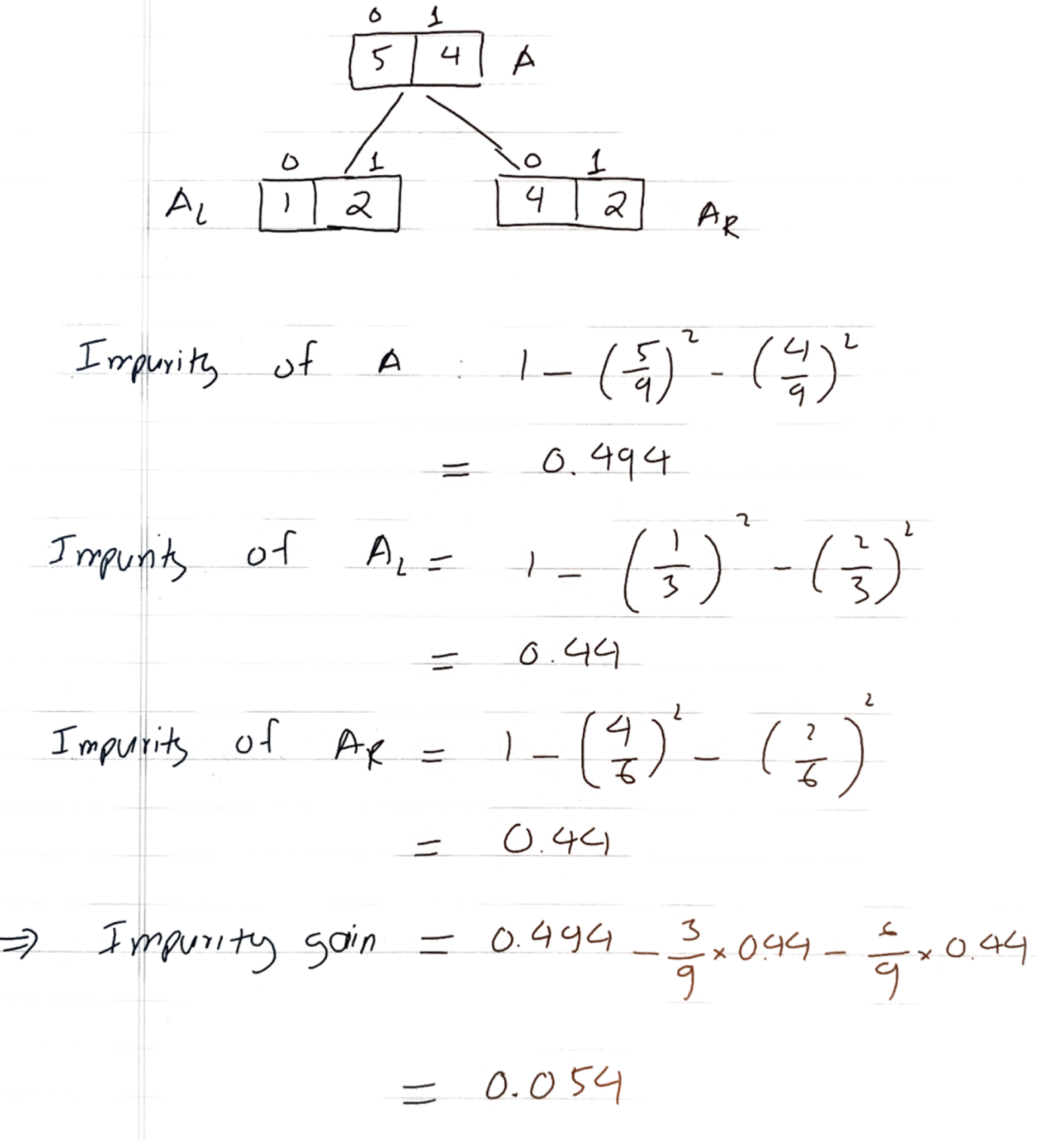 0 1
5 4 A
0 1 0 1
A_L 1 2 4 2 A_R
Impurity of A : 1 - (5/9)² - (4/9)²
= 0.494
Impurity of A_L = 1 - (1/3)² - (2/3)²
= 0.44
Impurity of A_R = 1 - (4/6)² - (2/6)²
= 0.44
⇒ Impurity gain = 0.494 - 3/9 × 0.44 - 6/9 × 0.44
= 0.054